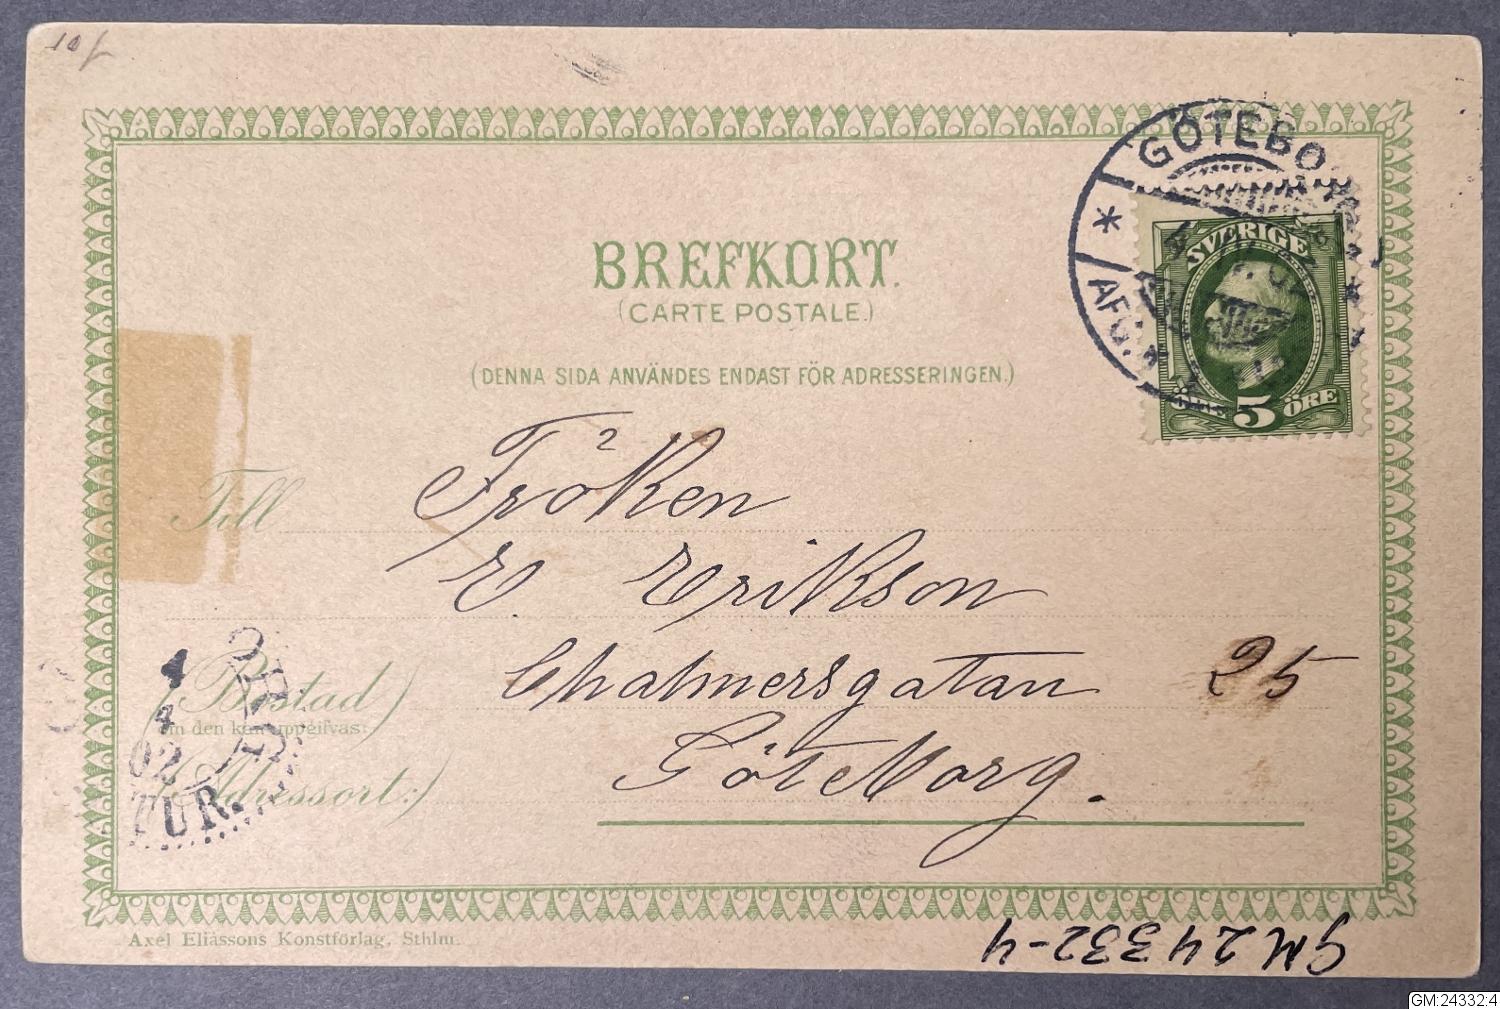 BREFKORT.
(CARTE POSTALE.)
(DENNA SIDA ANVÄNDES ENDAST FÖR ADRESSERINGEN.)
GÖTEBO
AFG.
SVERIGE
5 ÖRE
Till
Fröken
E. Erikson
(Bostad)
om den kan uppgifvas:
Chalmersgatan 25
(Adressort:)
Göteborg.
4
4
02
TUR.
Axel Eliassons Konstförlag, Sthlm.
GM24332-4
GM:24332:4